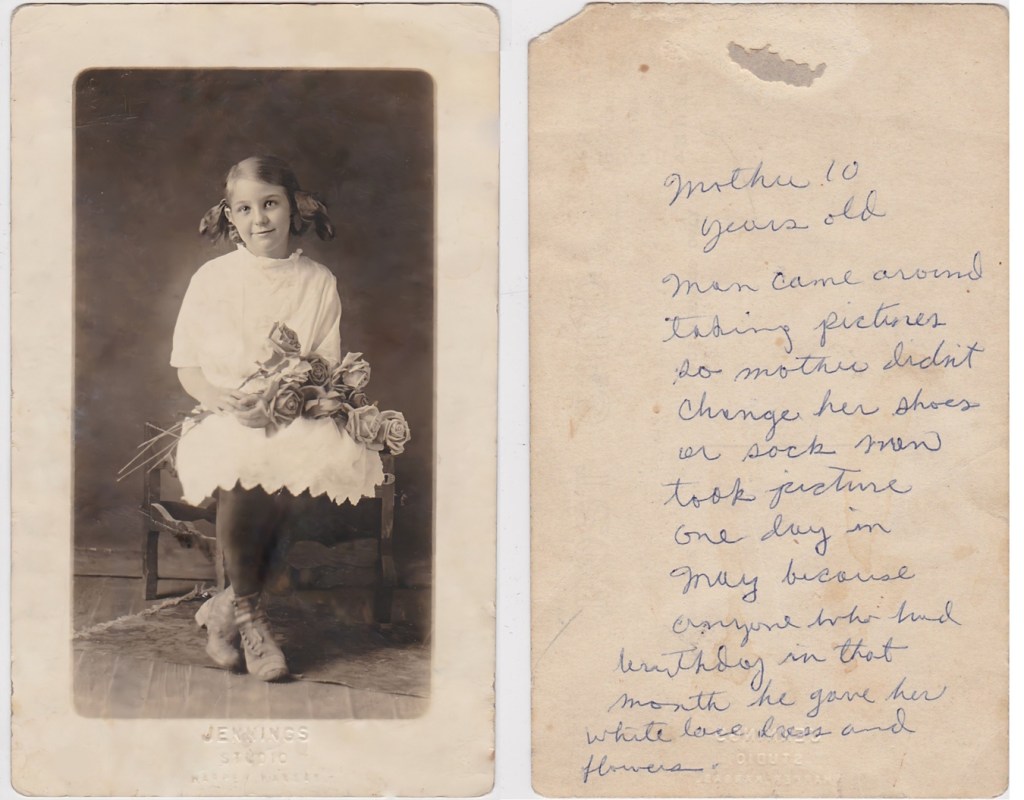 JENNINGS
STUDIO
Mother 10
years old
Man came around
taking pictures
so mother didn't
change her shoes
or sock man
took picture
one day in
May because
anyone who had
birthday in that
month he gave her
white lace dress and
flowers.